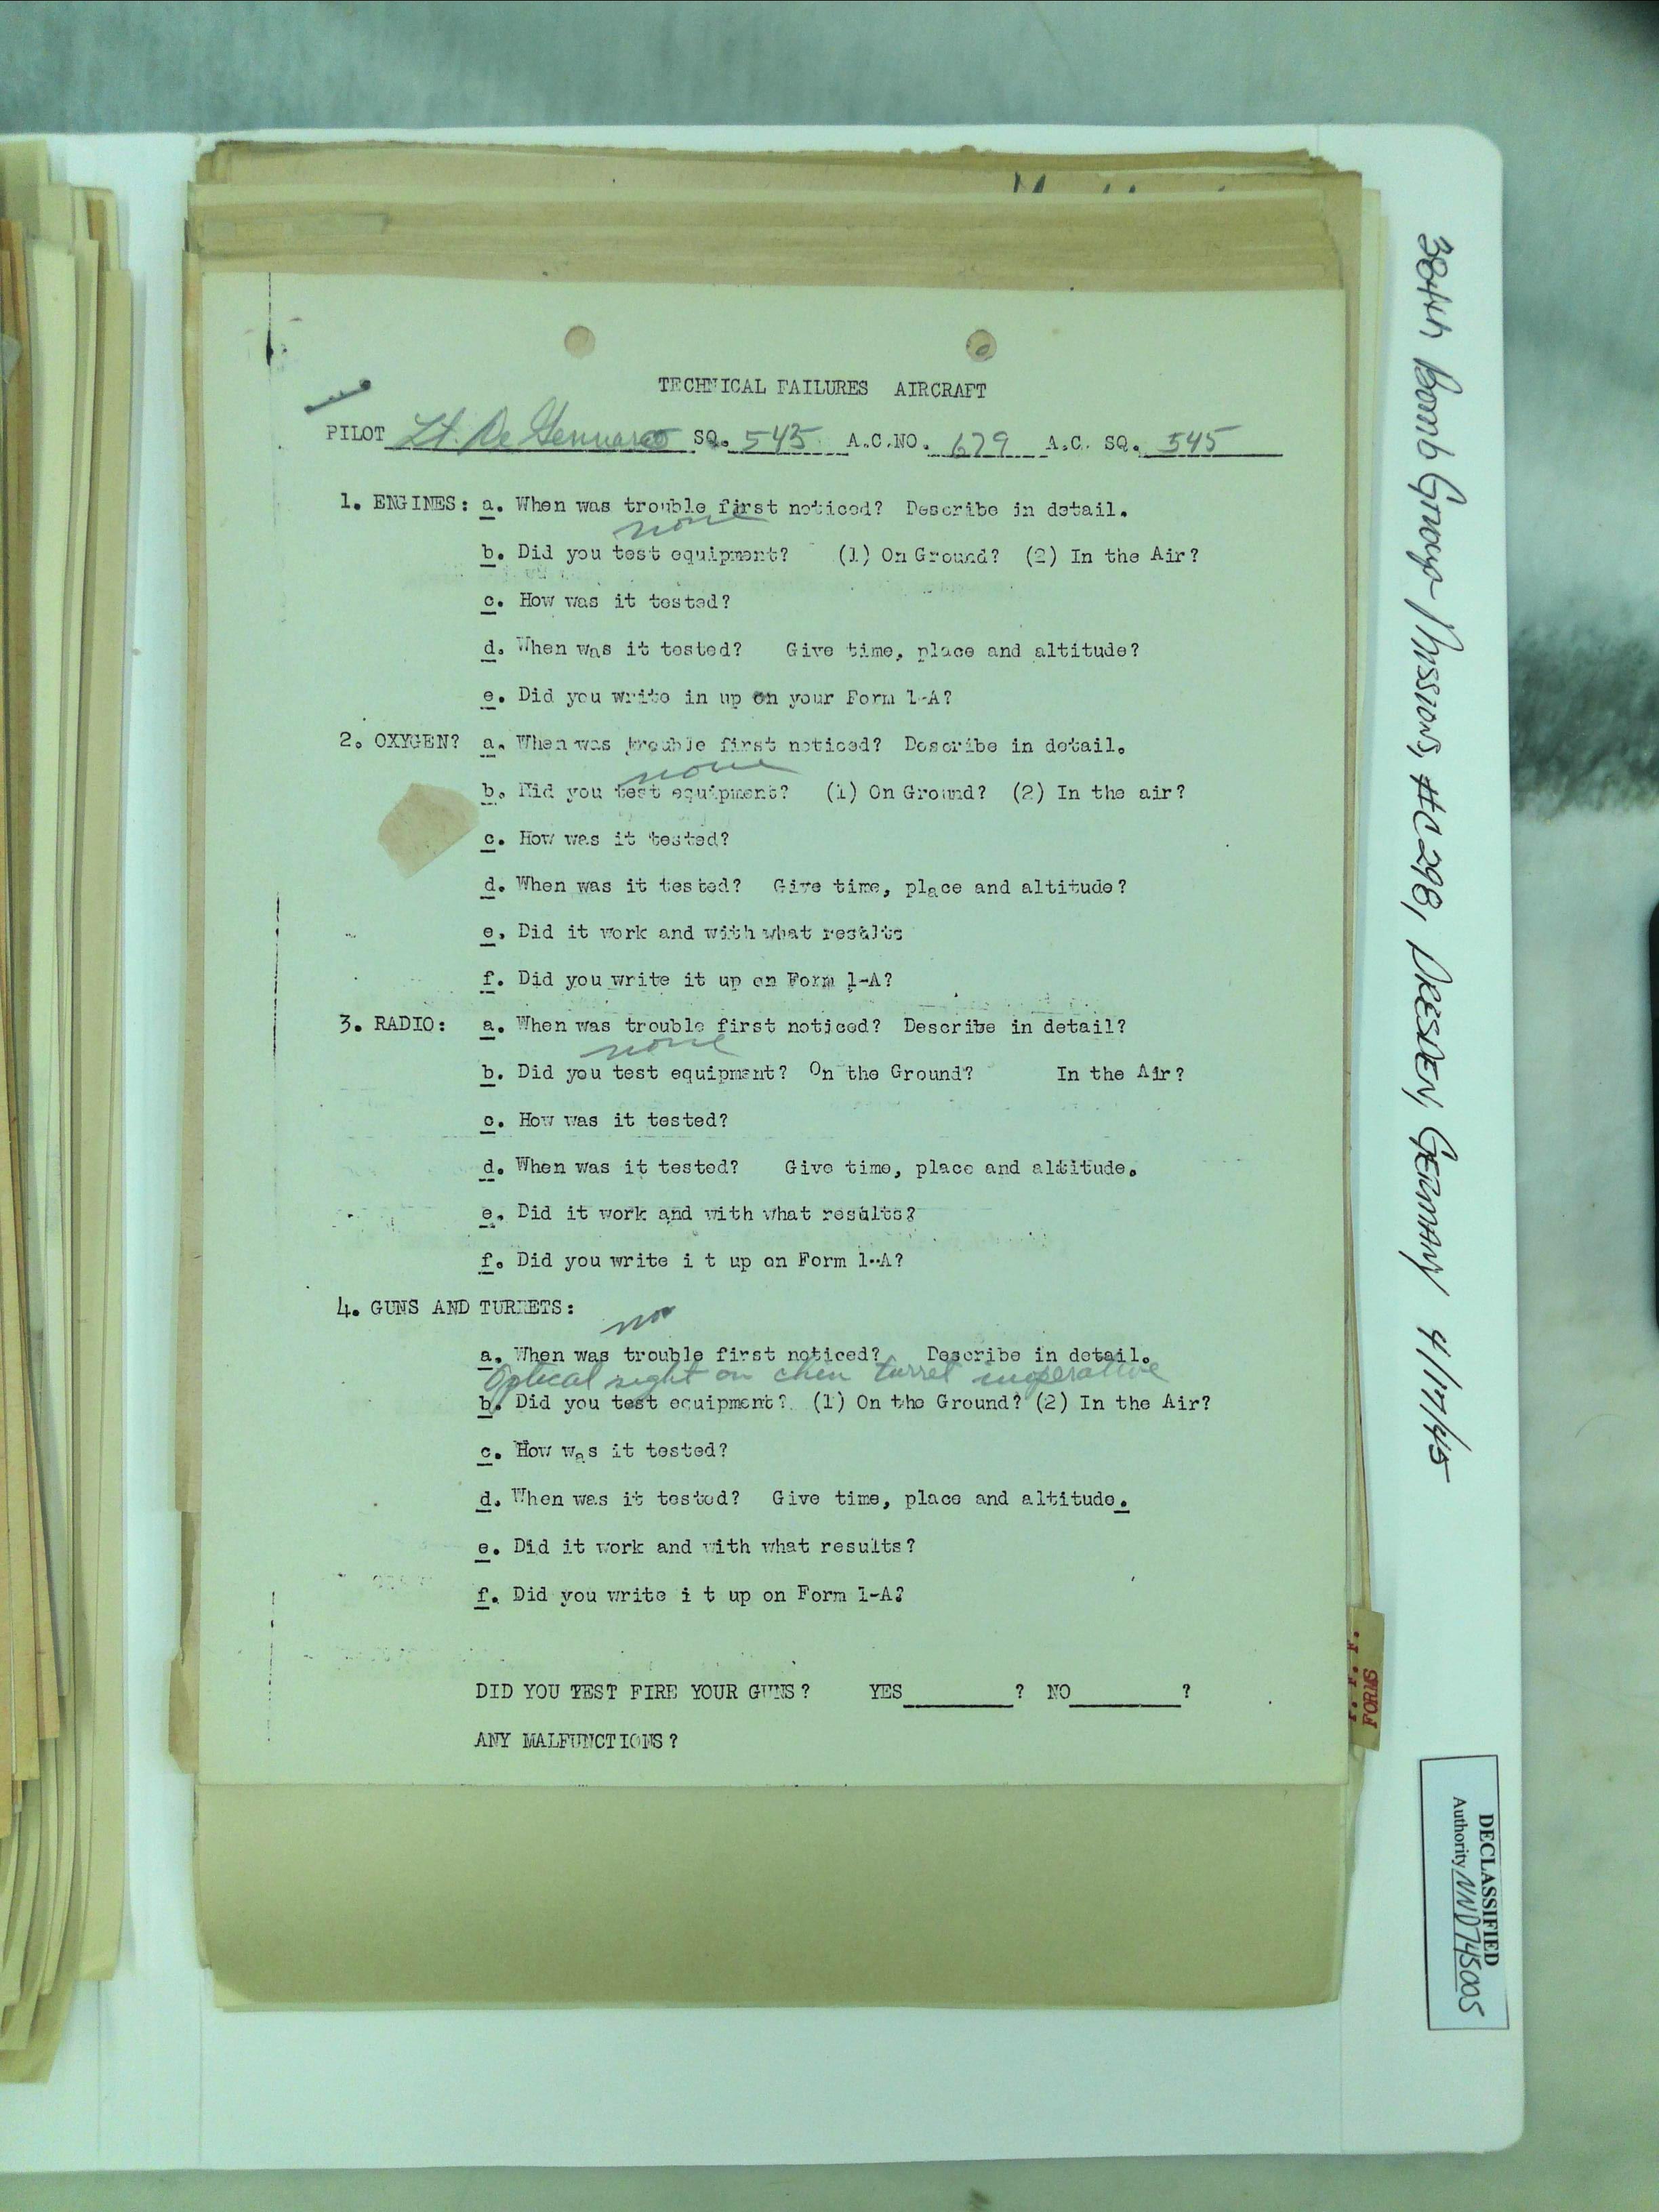 TECHNICAL FAILURES AIRCRAFT
PILOT Lt. De Gennaro SQ. 545 A.C.NO. 679 A.C. SQ. 545
1. ENGINES: a. When was trouble first noticed? Describe in detail.
none
b. Did you test equipment? (1) On Ground? (2) In the Air?
c. How was it tested?
d. When was it tested? Give time, place and altitude?
e. Did you write in up on your Form 1-A?
2. OXYGEN? a. When was trouble first noticed? Describe in detail.
none
b. Did you test equipment? (1) On Ground? (2) In the air?
c. How was it tested?
d. When was it tested? Give time, place and altitude?
e. Did it work and with what results
f. Did you write it up on Form 1-A?
3. RADIO: a. When was trouble first noticed? Describe in detail?
none
b. Did you test equipment? On the Ground? In the Air?
c. How was it tested?
d. When was it tested? Give time, place and altitude.
e. Did it work and with what results?
f. Did you write i t up on Form 1-A?
4. GUNS AND TURRETS:
no
a. When was trouble first noticed? Describe in detail.
Optical sight on chin turret inoperative
b. Did you test equipment? (1) On the Ground? (2) In the Air?
c. How was it tested?
d. When was it tested? Give time, place and altitude.
e. Did it work and with what results?
f. Did you write i t up on Form 1-A?
DID YOU TEST FIRE YOUR GUNS? YES ? NO ?
ANY MALFUNCTIONS?
384th Bomb Group Missions, #C298, DRESDEN, GERMANY 4/17/45
DECLASSIFIED
Authority NND745005
FORMS